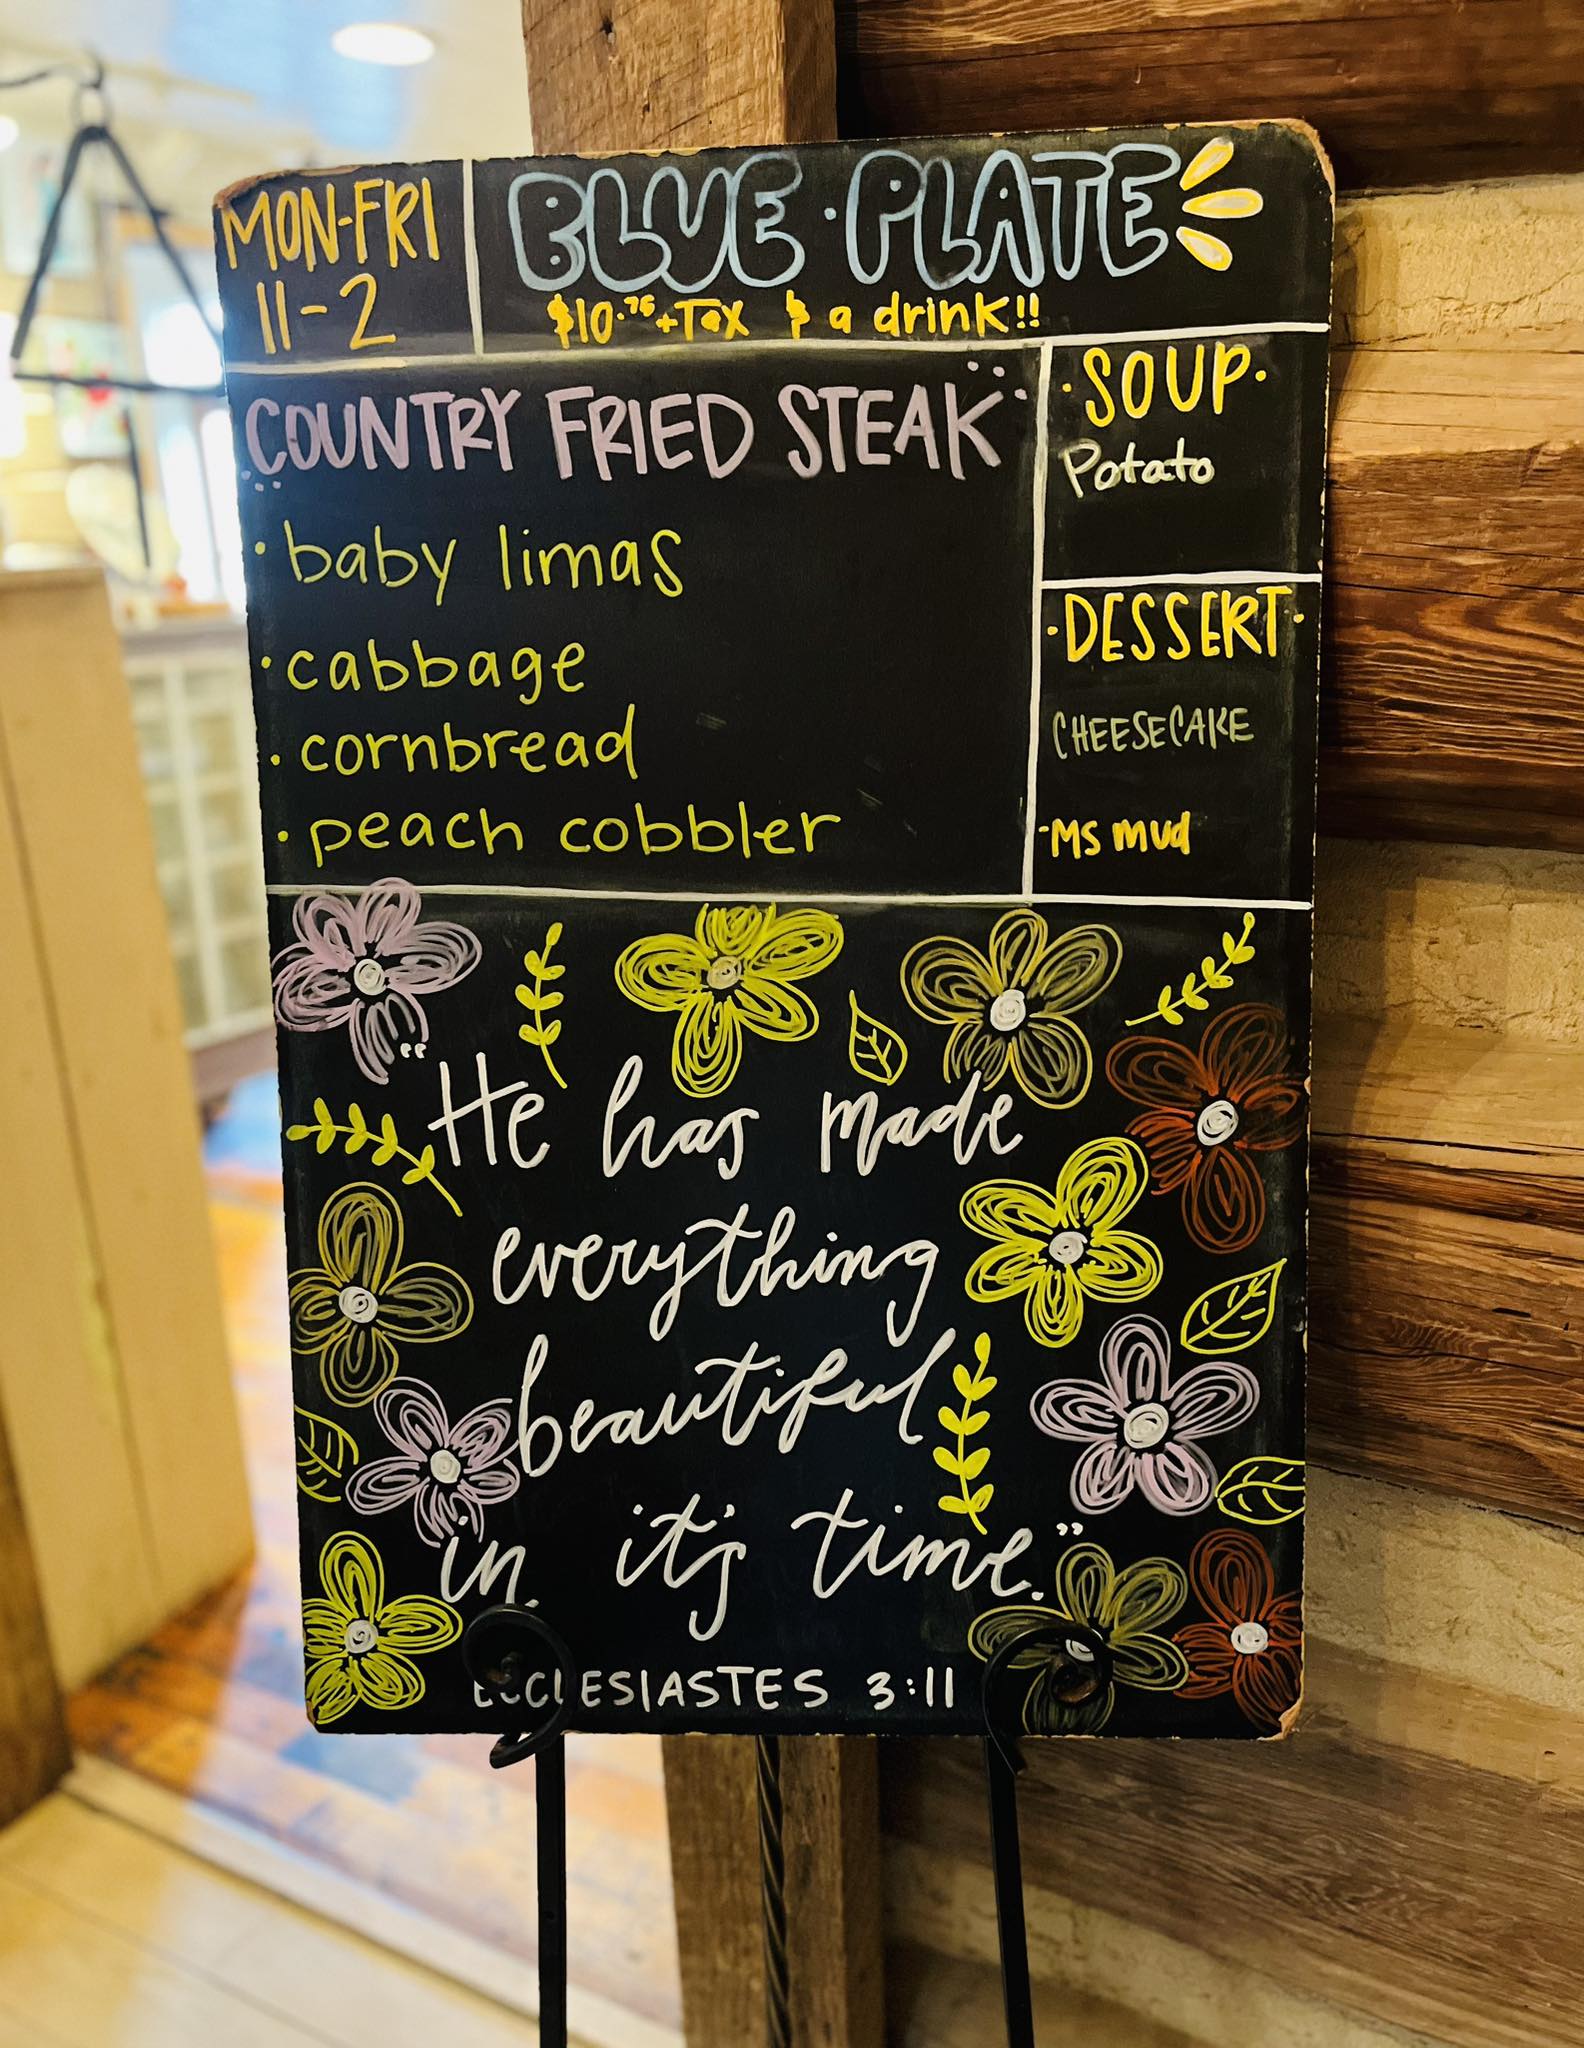 MON-FRI
11-2
BLUE·PLATE
$10.75+Tax & a drink!!
COUNTRY FRIED STEAK
· baby limas
· cabbage
· cornbread
· peach cobbler
·SOUP·
Potato
·DESSERT·
CHEESECAKE
-MS mud
"He has made
everything
beautiful
in it's time."
ECCLESIASTES 3:11